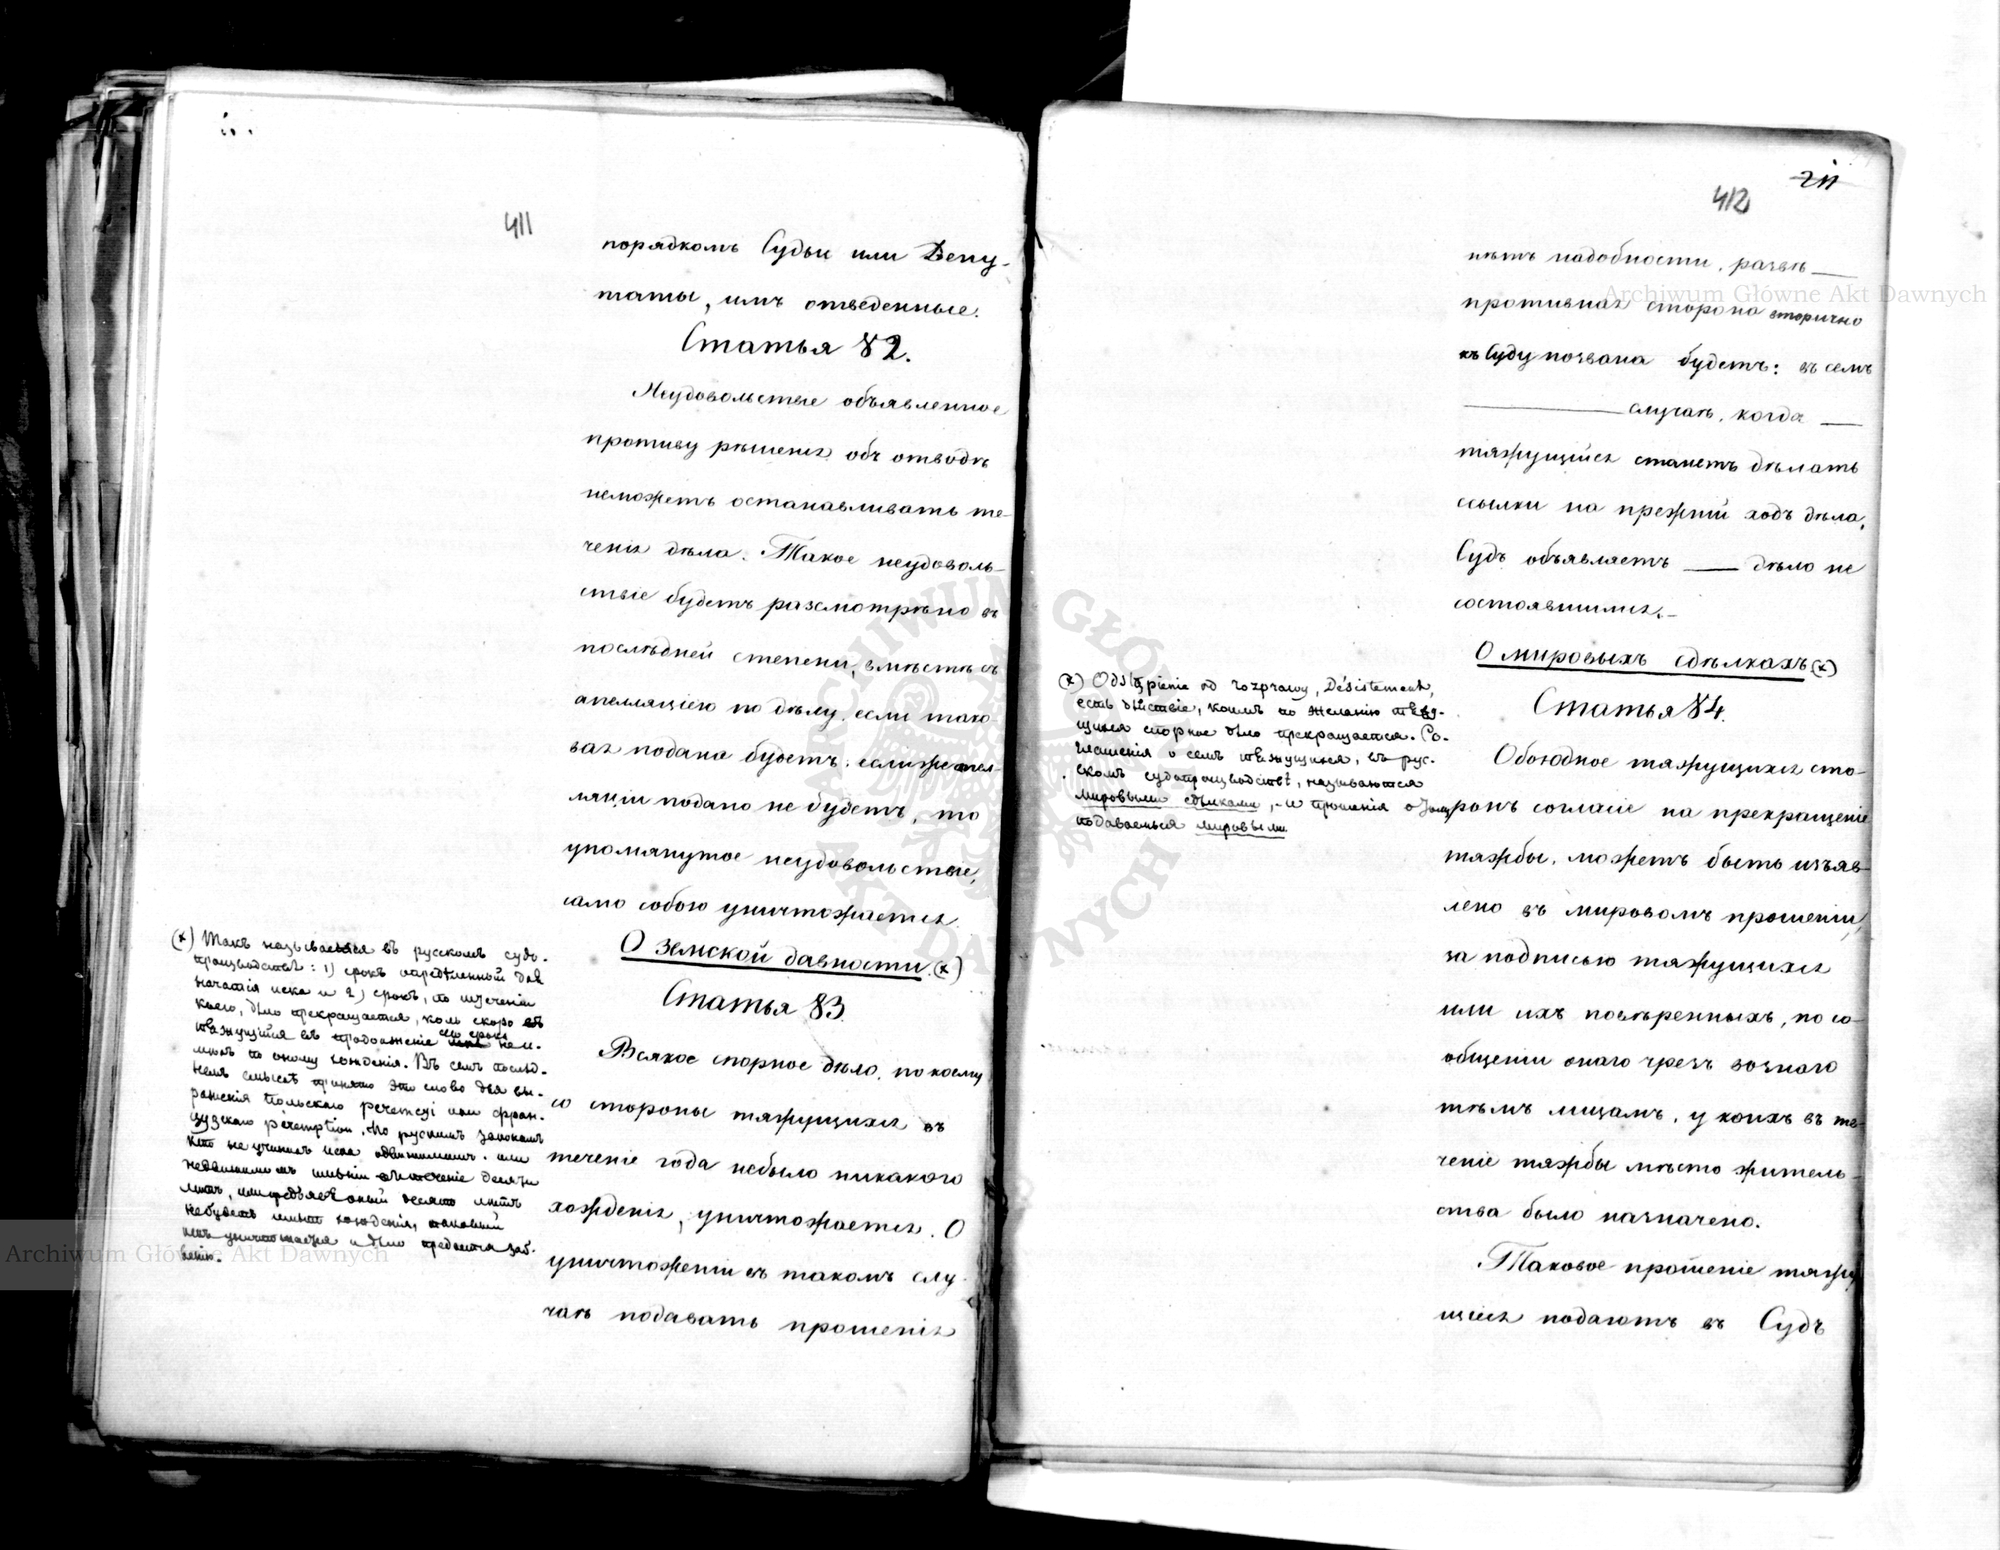 411
порядкомъ Судьи или Депу-
таты, имъ отведенные.
Статья 82.
Неудовольствіе объявленное
противу рѣшенія объ отводѣ
неможетъ останавливать те-
ченія дѣла. Такое неудоволь-
ствіе будетъ разсмотрѣно въ
послѣдней степени, вмѣстѣ съ
апелляціею по дѣлу, если тако-
вая подана будетъ; если же апел-
ляціи подано не будетъ, то
упомянутое неудовольствіе,
само собою уничтожается.
О Земской давности. (x)
Статья 83.
Всякое спорное дѣло, по коему
со стороны тяжущихся въ
теченіе года небыло никакого
хожденія, уничтожается. О
уничтоженіи въ такомъ слу-
чаѣ подавать прошенія
(x) Такъ называется въ русскомъ судо-
производствѣ: 1) срокъ опредѣленный для
начатія иска и 2) срокъ, по истеченіи
коего, дѣло прекращается, коль скоро
тяжущійся въ продолженіе сего срока не и-
мѣлъ по оному хожденія. Въ семъ послѣд-
немъ смыслѣ принято это слово для вы-
раженія польскаго peremcyi или фран-
цузскаго péremption. По русскимъ законамъ
кто не учинилъ иска о движимомъ или
недвижимомъ имѣніи въ теченіе десяти
лѣтъ, или предъявя оный десять лѣтъ
не будетъ имѣть хожденія, таковый
искъ уничтожается и дѣло предается заб-
венію.
412
211
нѣтъ надобности, развѣ
противная сторона вторично
къ Суду позвана будетъ: въ семъ
случаѣ, когда
тяжущійся станетъ дѣлать
ссылки на прежній ходъ дѣла,
Судъ объявляетъ дѣло не
состоявшимся.
О мировыхъ сдѣлкахъ (x)
Статья 84.
Обоюдное тяжущихся сто-
ронъ согласіе на прекращеніе
тяжбы, можетъ быть изъяв-
лено въ мировомъ прошеніи,
за подписью тяжущихся
или ихъ повѣренныхъ, по со-
общеніи онаго чрезъ возного
тѣмъ лицамъ, у коихъ въ те-
ченіе тяжбы мѣсто житель-
ства было назначено.
Таковое прошеніе тяжу-
щіеся подаютъ въ Судъ
(x) Odstąpienie od rozprawy, Désistement,
есть дѣйствіе, коимъ по желанію тяжу-
щихся спорное дѣло прекращается. Со-
глашенія о семъ тяжущихся, въ рус-
скомъ судопроизводствѣ, называются
мировыми сдѣлками, и прошенія о томъ
подаваемыя мировыми
Archiwum Główne Akt Dawnych
Archiwum Główne Akt Dawnych
ARCHIWUM GŁÓWNE AKT DAWNYCH